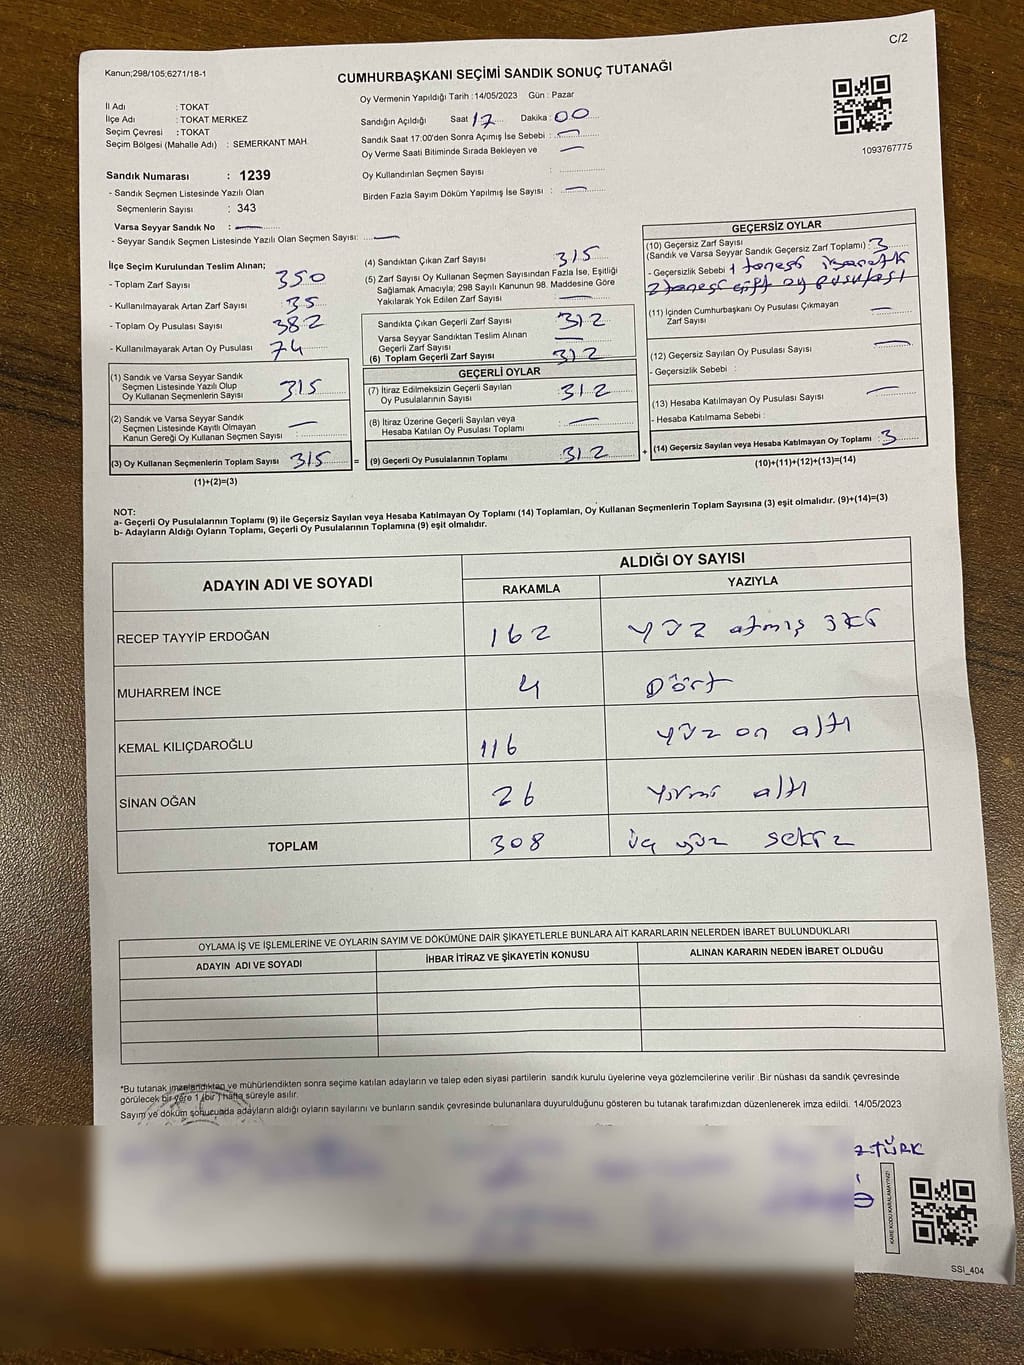 C/2
Kanun;298/105;6271/18-1
CUMHURBAŞKANI SEÇİMİ SANDIK SONUÇ TUTANAĞI
Oy Vermenin Yapıldığı Tarih :14/05/2023 Gün : Pazar
İl Adı : TOKAT
İlçe Adı : TOKAT MERKEZ
Seçim Çevresi : TOKAT
Seçim Bölgesi (Mahalle Adı) : SEMERKANT MAH.
Sandık Numarası : 1239
- Sandık Seçmen Listesinde Yazılı Olan
Seçmenlerin Sayısı : 343
Varsa Seyyar Sandık No : —
- Seyyar Sandık Seçmen Listesinde Yazılı Olan Seçmen Sayısı: —
Sandığın Açıldığı Saat 17 Dakika : 00
Sandık Saat 17:00'den Sonra Açmış İse Sebebi : —
Oy Verme Saati Bitiminde Sırada Bekleyen ve —
Oy Kullandırılan Seçmen Sayısı :
Birden Fazla Sayım Döküm Yapılmış İse Sayısı : —
1093767775
İlçe Seçim Kurulundan Teslim Alınan;
- Toplam Zarf Sayısı : 350
- Kullanılmayarak Artan Zarf Sayısı : 35
- Toplam Oy Pusulası Sayısı : 382
- Kullanılmayarak Artan Oy Pusulası : 74
(1) Sandık ve Varsa Seyyar Sandık
Seçmen Listesinde Yazılı Olup
Oy Kullanan Seçmenlerin Sayısı : 315
(2) Sandık ve Varsa Seyyar Sandık
Seçmen Listesinde Kayıtlı Olmayan
Kanun Gereği Oy Kullanan Seçmen Sayısı : —
(3) Oy Kullanan Seçmenlerin Toplam Sayısı : 315 =
(1)+(2)=(3)
(4) Sandıktan Çıkan Zarf Sayısı : 315
(5) Zarf Sayısı Oy Kullanan Seçmen Sayısından Fazla İse, Eşitliği
Sağlamak Amacıyla; 298 Sayılı Kanunun 98. Maddesine Göre
Yakılarak Yok Edilen Zarf Sayısı : —
Sandıkta Çıkan Geçerli Zarf Sayısı : 312
Varsa Seyyar Sandıktan Teslim Alınan
Geçerli Zarf Sayısı : —
(6) Toplam Geçerli Zarf Sayısı : 312
GEÇERLİ OYLAR
(7) İtiraz Edilmeksizin Geçerli Sayılan
Oy Pusulalarının Sayısı : 312
(8) İtiraz Üzerine Geçerli Sayılan veya
Hesaba Katılan Oy Pusulası Toplamı : —
(9) Geçerli Oy Pusulalarının Toplamı : 312 +
GEÇERSİZ OYLAR
(10) Geçersiz Zarf Sayısı
(Sandık ve Varsa Seyyar Sandık Geçersiz Zarf Toplamı) : 3
- Geçersizlik Sebebi : 1 tanesi
2 tanesi çift oy pusulası
(11) İçinden Cumhurbaşkanı Oy Pusulası Çıkmayan : —
Zarf Sayısı
(12) Geçersiz Sayılan Oy Pusulası Sayısı : —
- Geçersizlik Sebebi :
(13) Hesaba Katılmayan Oy Pusulası Sayısı : —
- Hesaba Katılmama Sebebi :
(14) Geçersiz Sayılan veya Hesaba Katılmayan Oy Toplamı : 3
(10)+(11)+(12)+(13)=(14)
NOT:
a- Geçerli Oy Pusulalarının Toplamı (9) ile Geçersiz Sayılan veya Hesaba Katılmayan Oy Toplamı (14) Toplamları, Oy Kullanan Seçmenlerin Toplam Sayısına (3) eşit olmalıdır. (9)+(14)=(3)
b- Adayların Aldığı Oyların Toplamı, Geçerli Oy Pusulalarının Toplamına (9) eşit olmalıdır.
ADAYIN ADI VE SOYADI ALDIĞI OY SAYISI
RAKAMLA YAZIYLA
RECEP TAYYİP ERDOĞAN 162 yüz atmış iki
MUHARREM İNCE 4 Dört
KEMAL KILIÇDAROĞLU 116 yüz on altı
SİNAN OĞAN 26 yirmi altı
TOPLAM 308 üç yüz sekiz
OYLAMA İŞ VE İŞLEMLERİNE VE OYLARIN SAYIM VE DÖKÜMÜNE DAİR ŞİKAYETLERLE BUNLARA AİT KARARLARIN NELERDEN İBARET BULUNDUKLARI
ADAYIN ADI VE SOYADI İHBAR İTİRAZ VE ŞİKAYETİN KONUSU ALINAN KARARIN NEDEN İBARET OLDUĞU
*Bu tutanak imzelandıktan ve mühürlendikten sonra seçime katılan adayların ve talep eden siyasi partilerin sandık kurulu üyelerine veya gözlemcilerine verilir .Bir nüshası da sandık çevresinde
görülecek bir yere 1 (bir ) hafta süreyle asılır.
Sayım ve döküm sonucuada adayların aldığı oyların sayılarını ve bunların sandık çevresinde bulunanlara duyurulduğunu gösteren bu tutanak tarafımızdan düzenlenerek imza edildi. 14/05/2023
ZTÜRK
KARE KODU KARALAMAYINIZ!
SSI_404